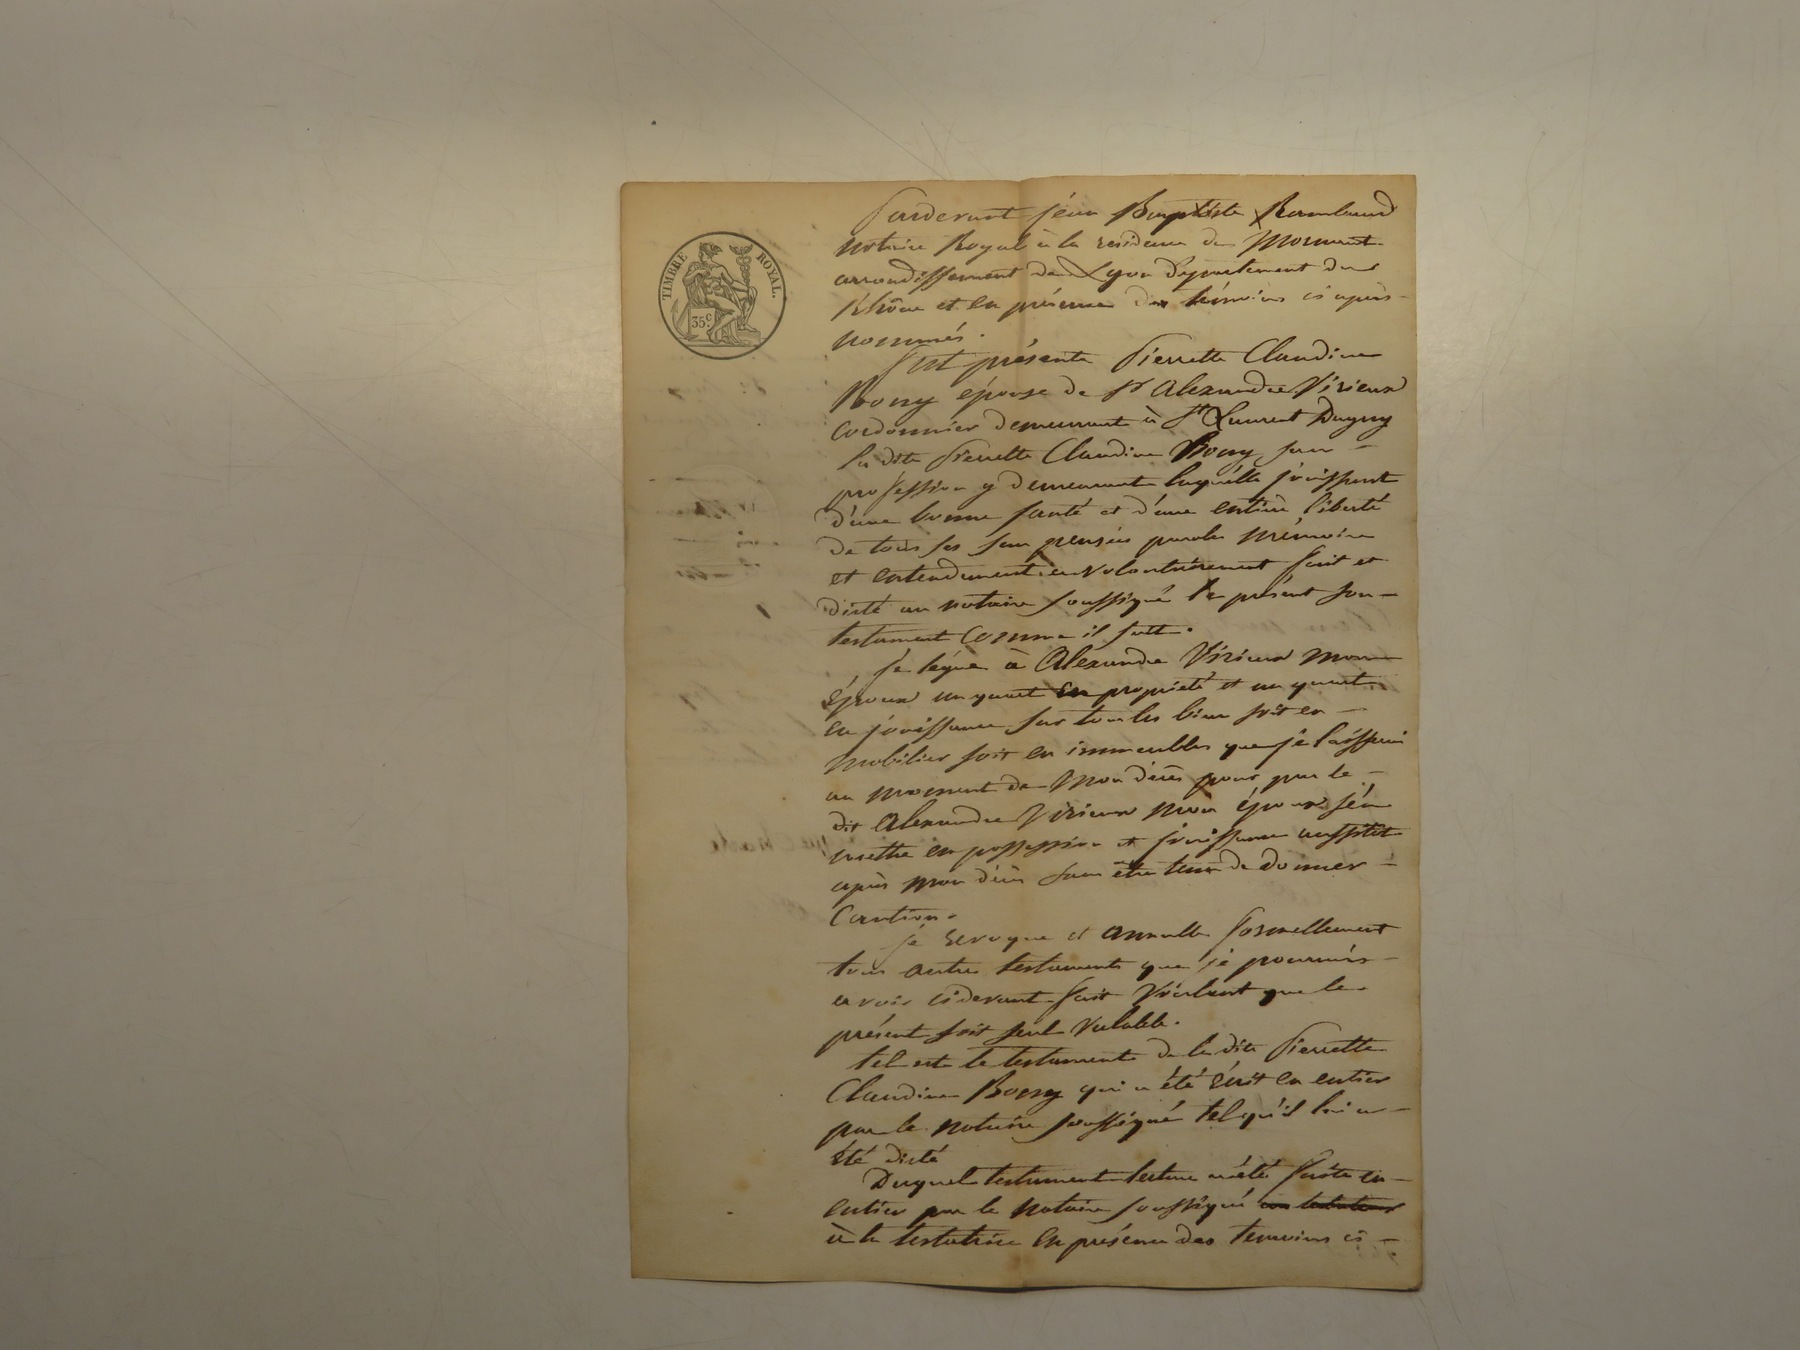 TIMBRE ROYAL.
35 c.
Pardevant jéan Baptiste Rambaud
notaire Royal à la residence de Mornant
arrondissement de Lyon département du
Rhône et en présence des témoins ci après
nommés.
fut présente Pierrette Claudine
Bony épouse de Sr Alexandre Virieux
cordonnier demeurant à St Laurent Dagny
la dite Pierrette Claudine Bony sans
profession y demeurante laquelle jouissant
d'une bonne santé et d'une entière liberté
de tous ses sens pensées paroles mémoire
et entendement a volontairement fait et
dicté au notaire soussigné le présent son
testament comme il suit.
je lègue à Alexandre Virieux mon
époux un quart en propriété et un quart
en jouissance sur tous les bien soit en
mobilier soit en immeubles que je laisserai
au moment de mon décès pour par le
dit Alexandre Virieux mon époux s'én
mettre en possession et jouissance aussitôt
après mon décès sans être tenu de donner
Caution.
jé revoque et annulle formellement
tous autres testaments que jé pourrais
avoir cidevant fait Voulant que le
présent soit seul valable.
tel est le testament de la dite Pierrette
Claudine Bony qui a été écrit en entier
par le notaire soussigné tel qu'il lui a
été dicté
Duquel testament lecture a été faite en
entier par le notaire soussigné
à la testatrice en présence des temoins ci